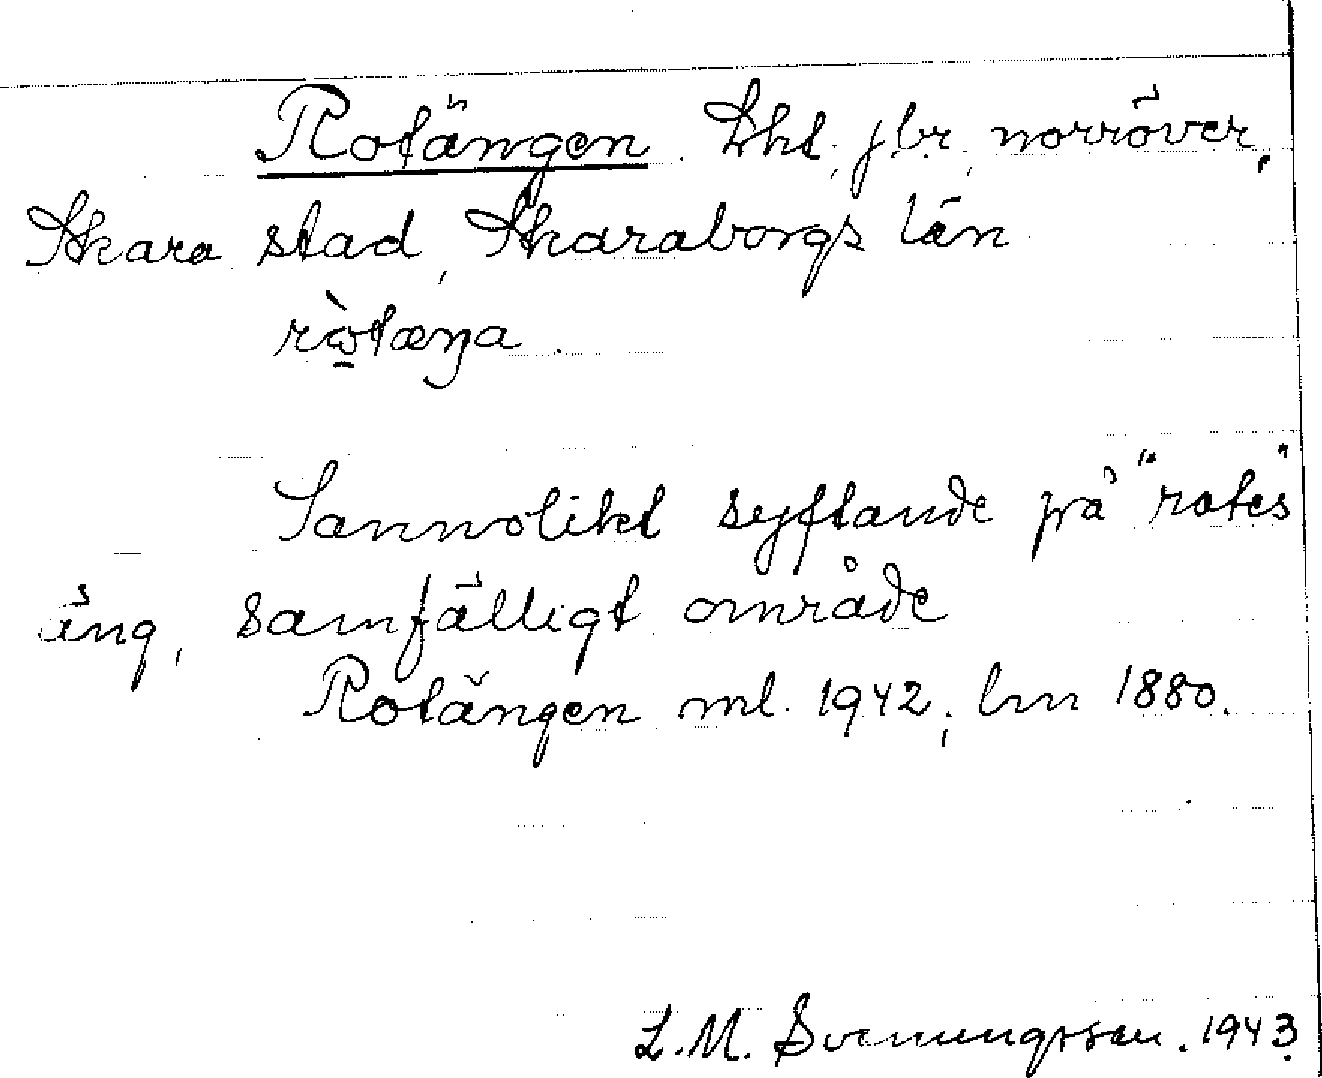 Rotängen. Lht, jbr, norröver,
Skara stad, Skaraborgs län
ròtæŋa.
Sannolikt syftande på "rotes"
äng, samfälligt område
Rotängen ml. 1942; lm 1880.
L.M. Svenungsson. 1943.